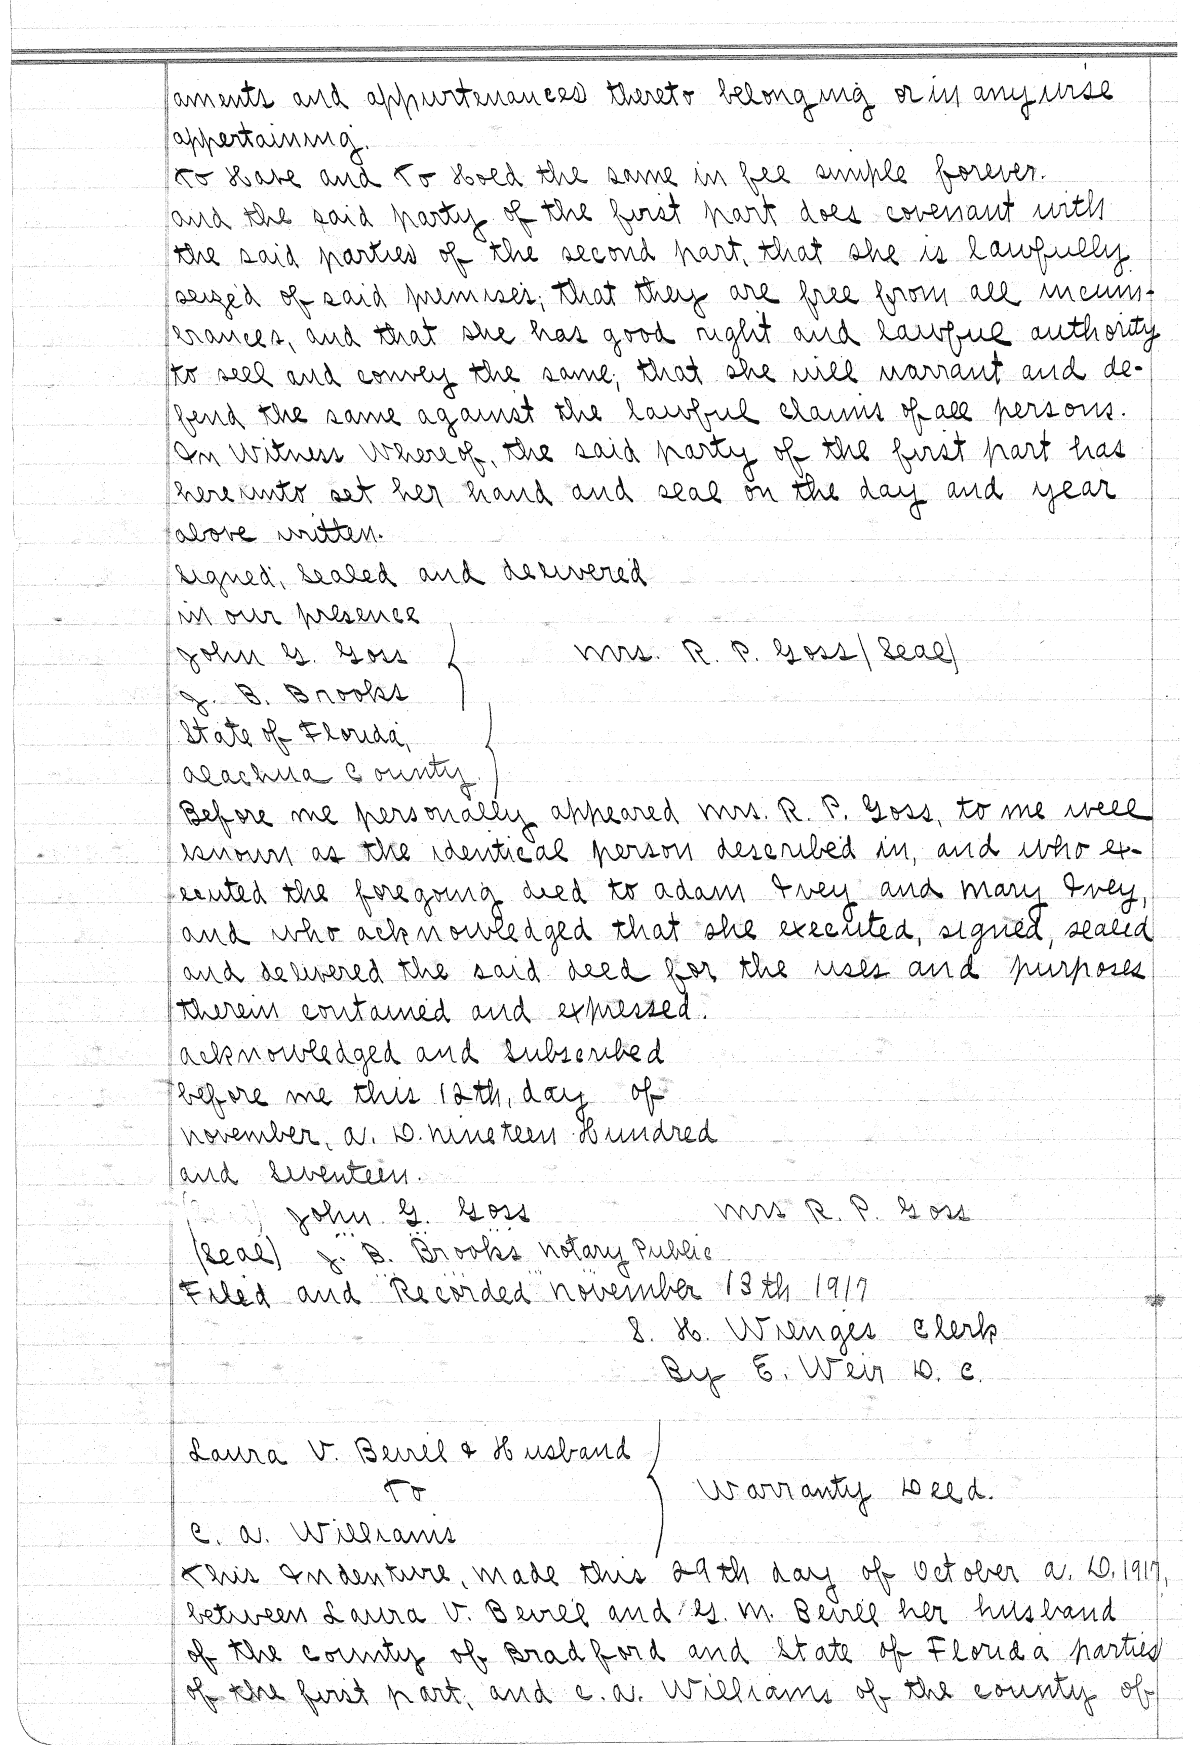 aments and appurtenances thereto belonging or in any wise
appertaining.
To Have and To Hold the same in fee simple forever.
and the said party of the first part does covenant with
the said parties of the second part, that she is lawfully
seized of said premises; that they are free from all incum-
brances, and that she has good right and lawful authority
to sell and convey the same; that she will warrant and de-
fend the same against the lawful claims of all persons.
In Witness Whereof, the said party of the first part has
hereunto set her hand and seal on the day and year
above written.
Signed, Sealed and delivered
in our presence
John G. Goss } Mrs. R. P. Goss (Seal)
J. B. Brooks
State of Florida, }
Alachua County.
Before me personally appeared Mrs. R. P. Goss, to me well
known as the identical person described in, and who ex-
ecuted the foregoing deed to Adam Ivey and Mary Ivey,
and who acknowledged that she executed, signed, sealed
and delivered the said deed for the uses and purposes
therein contained and expressed.
Acknowledged and Subscribed
before me this 12th, day of
November, A. D. nineteen Hundred
and Seventeen.
John G. Goss Mrs R. P. Goss
(Seal) J. B. Brooks Notary Public
Filed and Recorded November 13th 1917
S. H. Wienges Clerk
By E. Weir D. C.
Laura V. Beville & Husband }
To } Warranty Deed.
C. A. Williams
This Indenture, made this 29th day of October A. D. 1917,
between Laura V. and G. M. her husband
of the County of Bradford and State of Florida parties
of the first part, and C. A. Williams of the county of